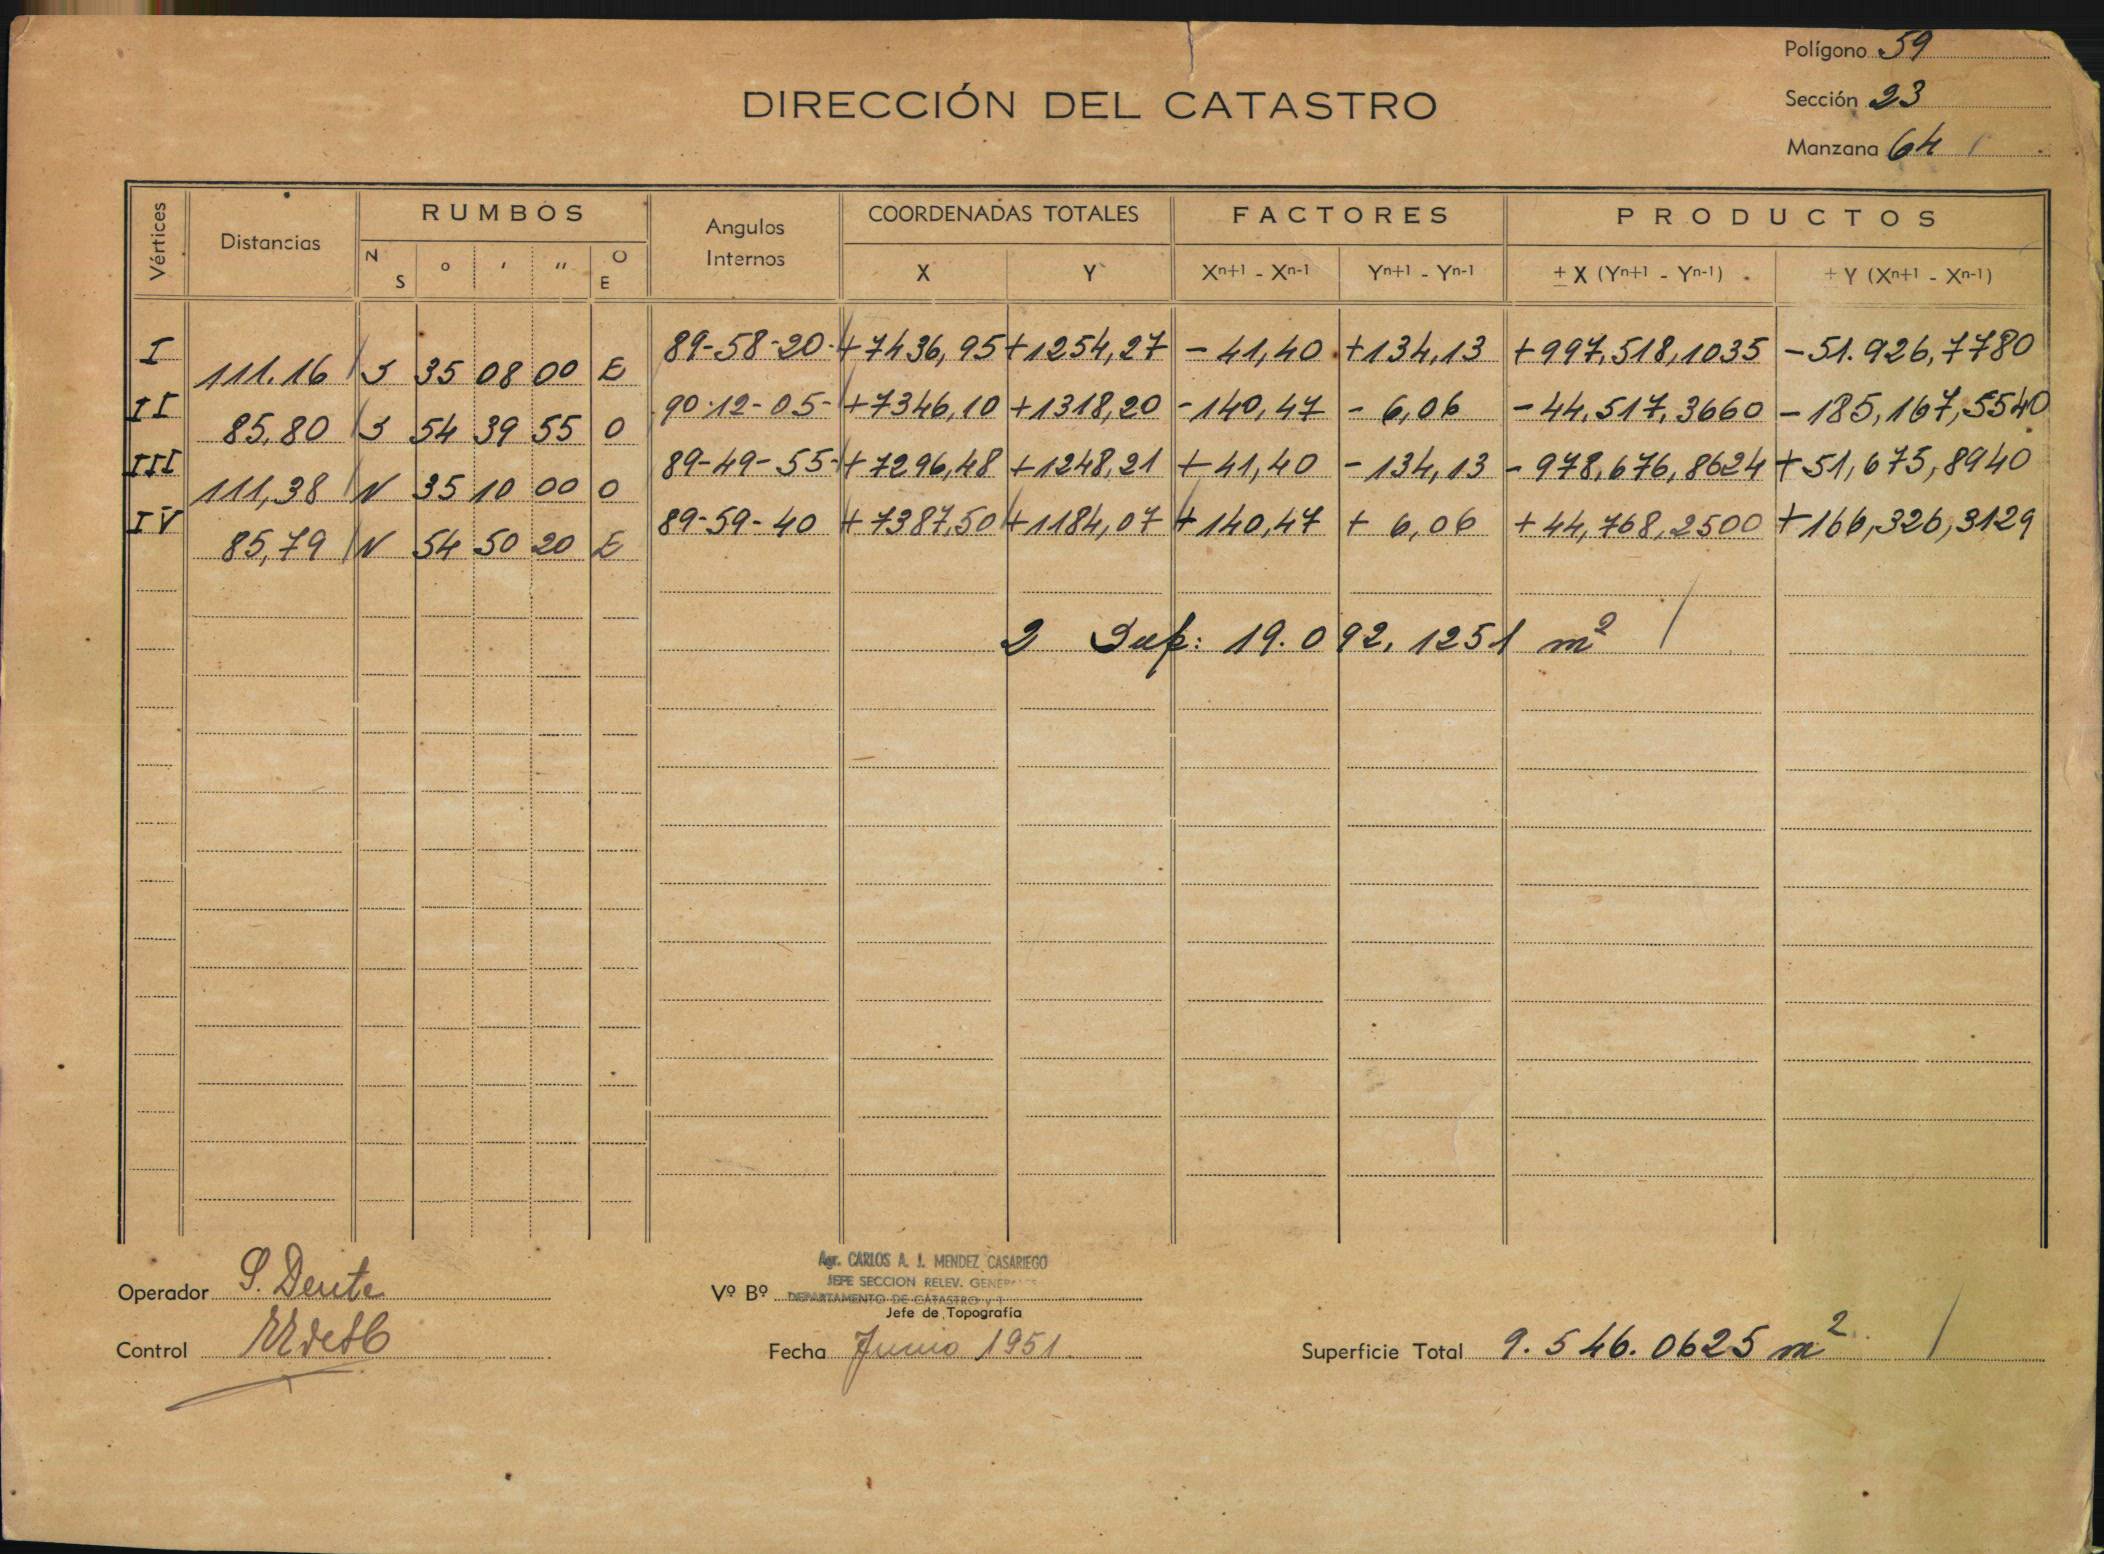 Polígono 59
DIRECCIÓN DEL CATASTRO
Sección 23
Manzana 64
Vértices Distancias RUMBOS Angulos Internos COORDENADAS TOTALES FACTORES PRODUCTOS
N S ° ' " O E X Y Xn+1 - Xn-1 Yn+1 - Yn-1 ± X (Yn+1 - Yn-1) ± Y (Xn+1 - Xn-1)
I 89-58-20- +7436,95 +1254,27 -41,40 +134,13 +997,518,1035 -51.926,7780
111.16 S 35 08 00 E
II 90-12-05- +7346,10 +1318,20 -140,47 - 6,06 -44,517,3660 -185,167,5540
85,80 S 54 39 55 O
III 89-49-55- +7296,48 +1248,21 +41,40 -134,13 -978,676,8624 +51,675,8940
111,38 N 35 10 00 O
IV 89-59-40 +7387,50 +1184,07 +140,47 + 6,06 +44,768,2500 +166,326,3129
85,79 N 54 50 20 E
2 Sup: 19.092,1251 m²
Agr. CARLOS A. J. MENDEZ CASARIEGO
JEFE SECCION RELEV. GENERALES
DEPARTAMENTO DE CATASTRO y T
Operador S. Dente Vº Bº
Jefe de Topografía
Control Fecha Junio 1951 Superficie Total 9.546.0625 m²